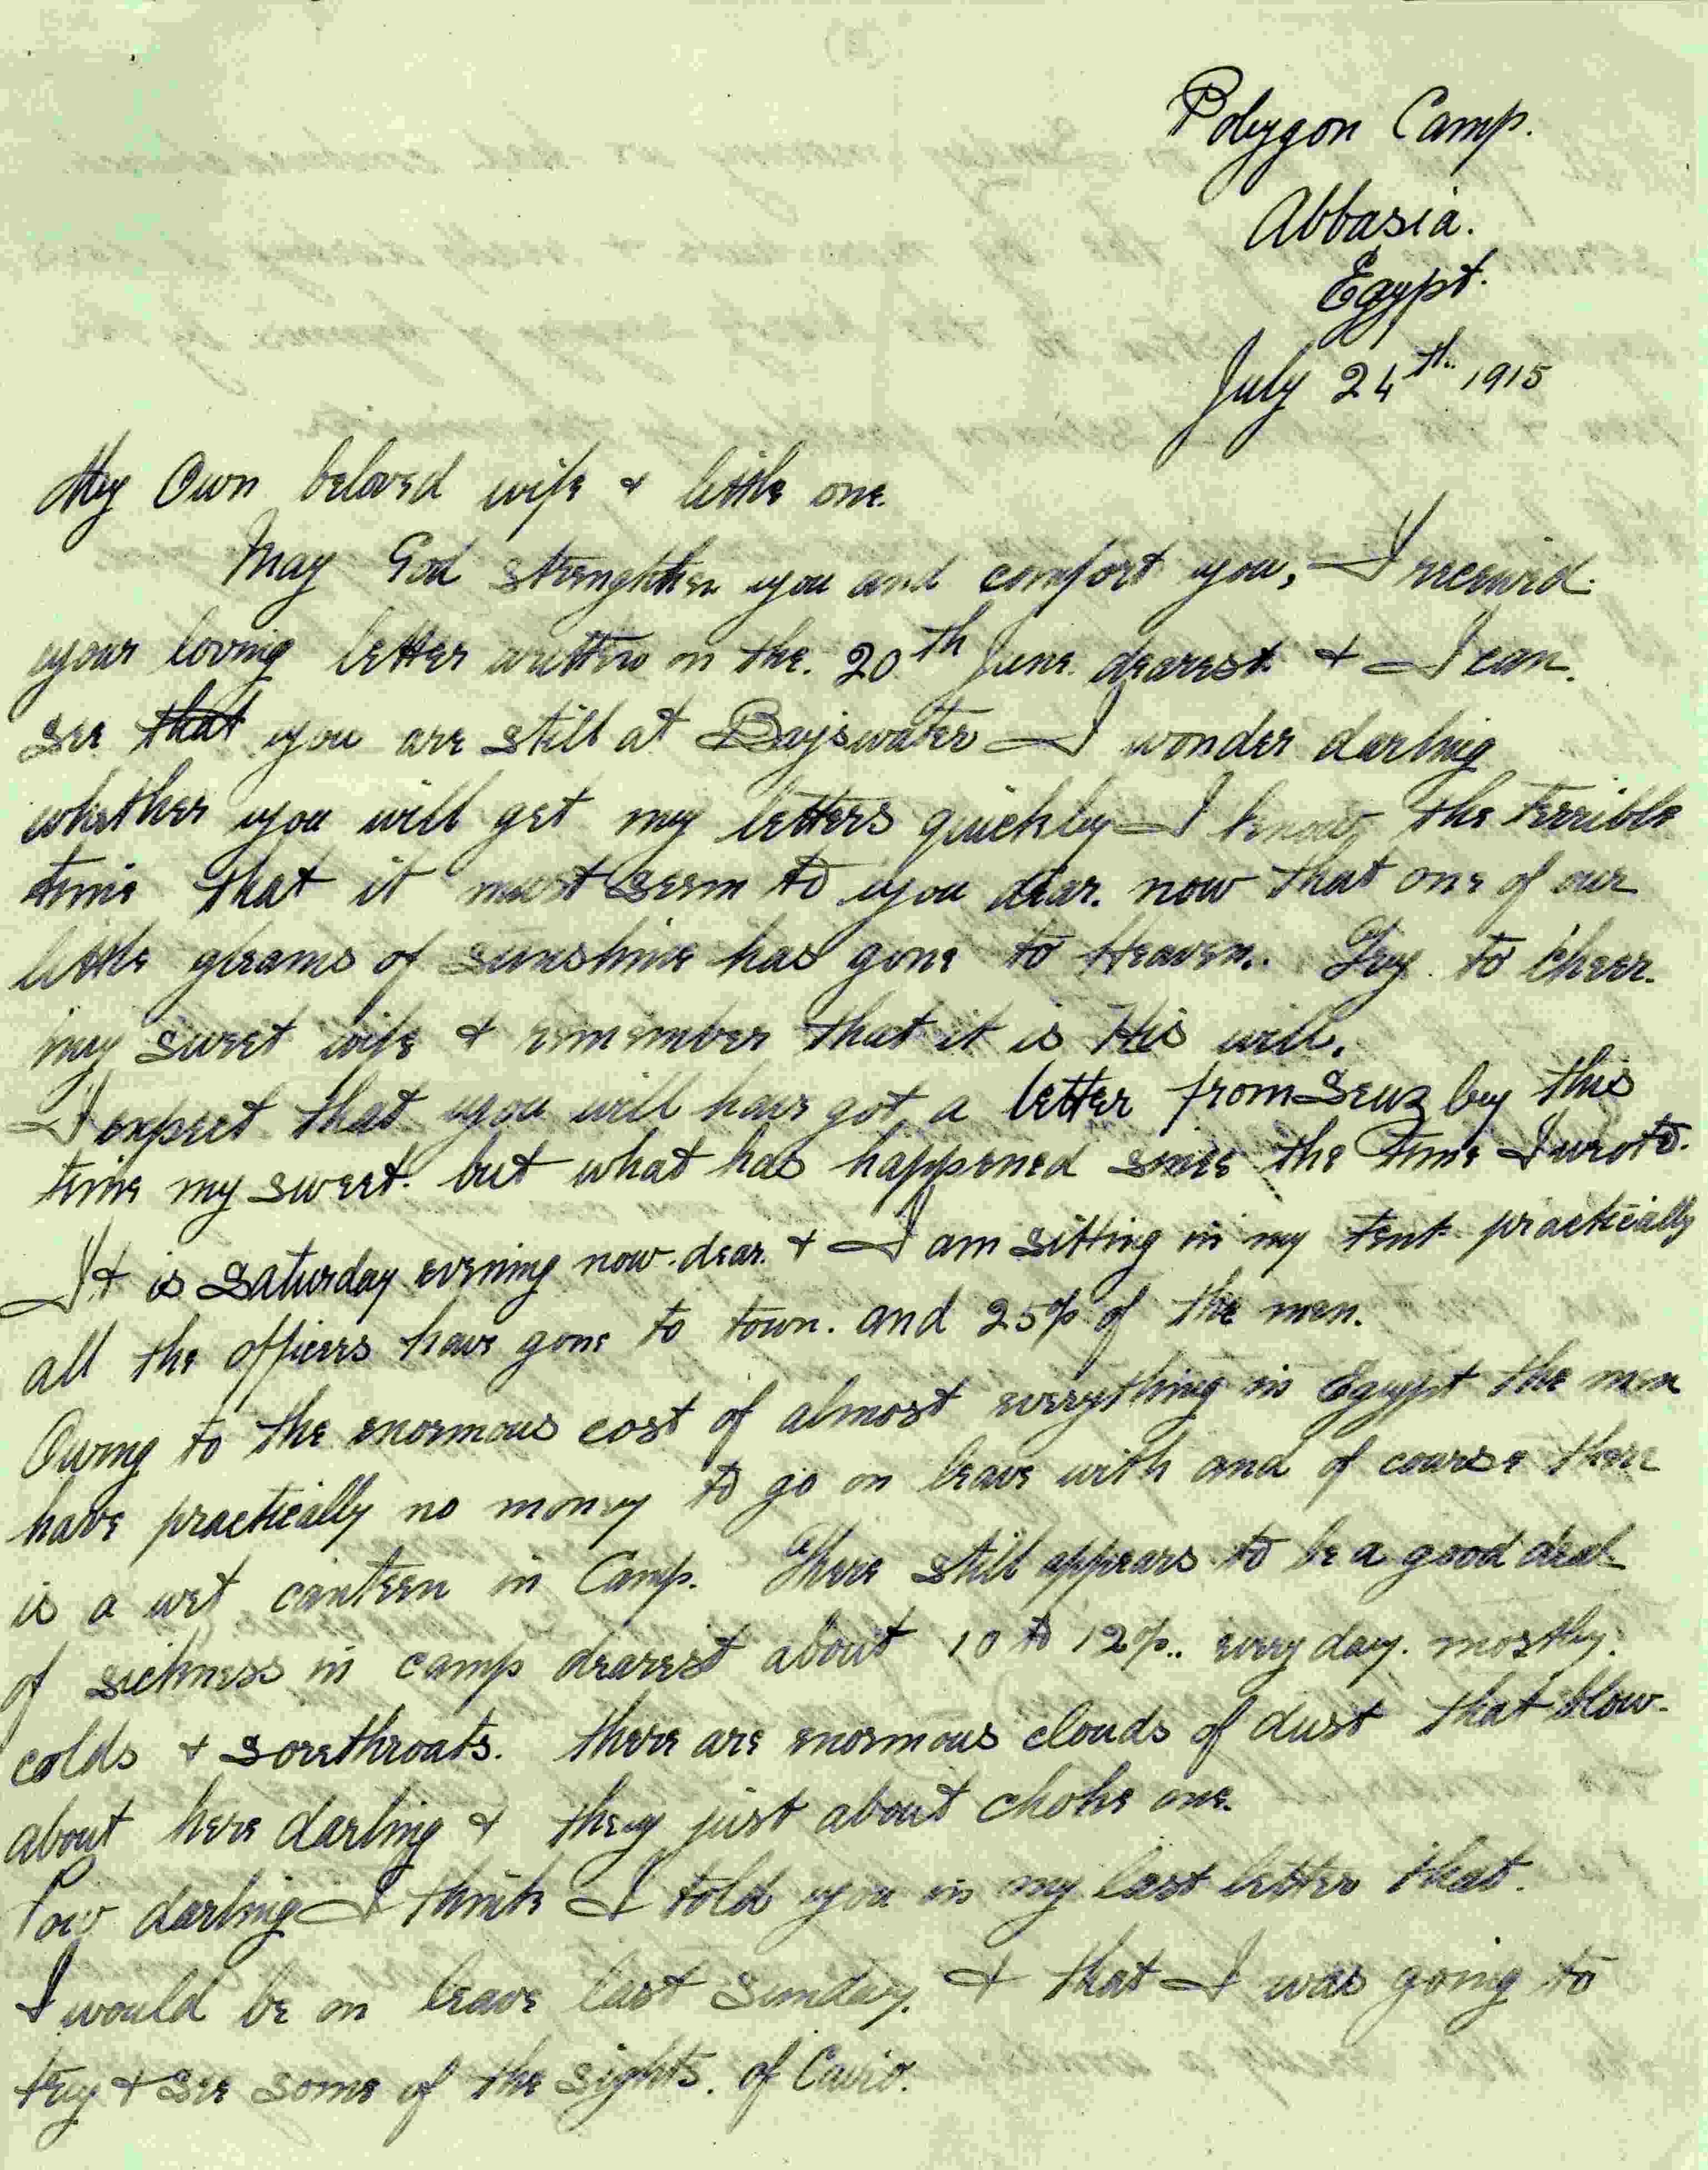 Polygon Camp.
Abbasia.
Egypt.
July 24th. 1915
My Own beloved wife & little one.
May God strengthen you and comfort you, I received.
your loving letter written on the. 20th June. dearest & I can.
see that you are still at Bayswater I wonder darling
whether you will get my letters quickly I know the terrible
time that it must seem to you dear. now that one of our
little gleams of sunshine has gone to Heaven. Try. to cheer.
my sweet wife & remember that it is His will.
I expect that you will have got a letter from Seuz by this
time my sweet. but what has happened since the time I wrote.
It is Saturday evening now. dear. & I am sitting in my tent practically
all the officers have gone to town. and 25% of the men.
Owing to the enormous cost of almost everything in Egypt the men
have practically no money to go on leave with and of course there
is a wet canteen in Camp. There still appears to be a good deal
of sickness in camp dearest about 10 to 12%.. every day. mostly.
colds & sorethroats. there are enormous clouds of dust that blow.
about here darling & they just about choke one.
darling I think I told you in my last letter that.
I would be on leave last Sunday. & that I was going to
try & see some of the sights. of Cairo.